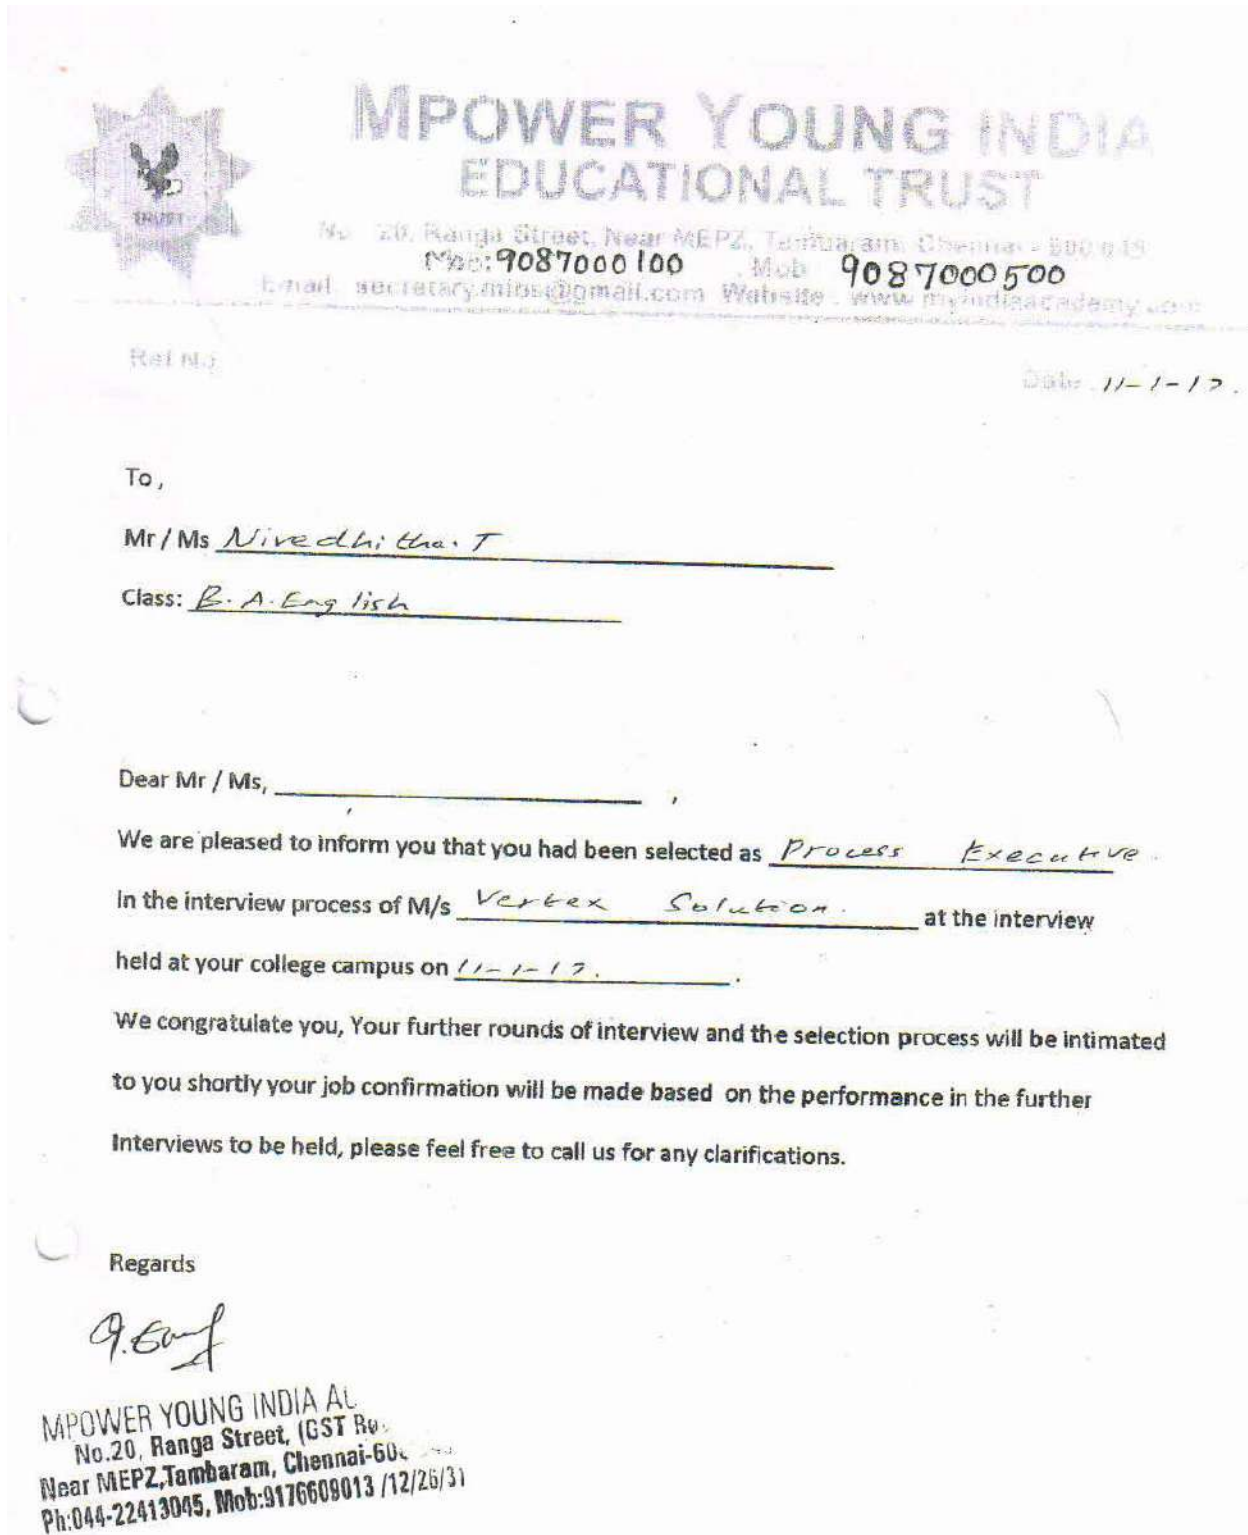 MPOWER YOUNG INDIA
EDUCATIONAL TRUST
TRUST
No 20, Ranga Street, Near MEPZ, Tambaram, Chennai - 600 045
Mob:9087000100 Mob 9087000500
Email secretary.mibsi@gmail.com Website . www myindiaacademy.com
Ref No
Date 11-1-17.
To,
Mr / Ms Nivedhitha.T
Class: B.A.English
Dear Mr / Ms, ,
We are pleased to inform you that you had been selected as Process Executive.
In the interview process of M/s Vertex Solution. at the interview
held at your college campus on 11-1-17. .
We congratulate you, Your further rounds of interview and the selection process will be intimated
to you shortly your job confirmation will be made based on the performance in the further
Interviews to be held, please feel free to call us for any clarifications.
Regards
MPOWER YOUNG INDIA
No.20, Ranga Street, (GST
Near MEPZ,Tambaram, Chennai-
Ph:044-22413045, Mob:9176609013 /12/26/31